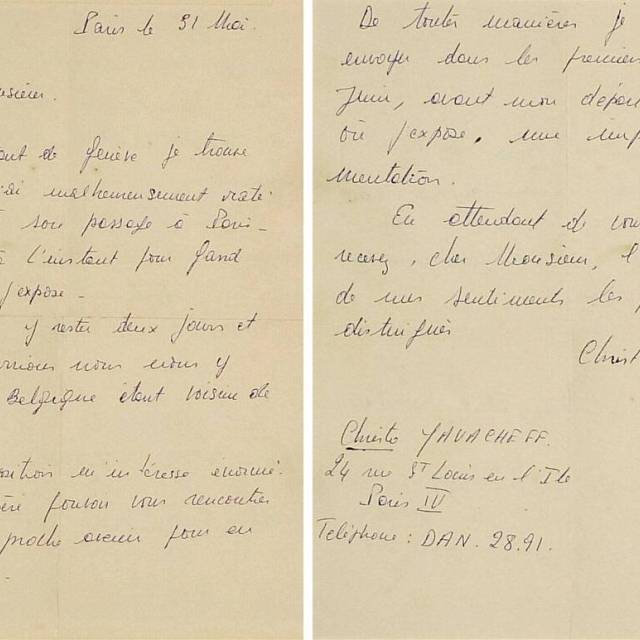 Paris le 31 Mai.
nsieur.
ant de Genève je trouve
ai malheureusement raté
son passage à Paris-
à l'instant pour Gand
j'expose -
y rester deux jours et
nous nous y
Belgique étant voisine de
sition m'intéresse énormé-
pouvoir vous rencontrer
proche avenir pour en
De toutes manières je
envoyer dans les premiers
Juin, avant mon dépa
où j'expose, une imp
mentation.
En attendant de vou
recevez, cher Monsieur, l'
de mes sentiments les p
distingués
Christ
Christo YAVACHEFF.
24 rue ST Louis en l'Ile
Paris IV
Téléphone : DAN. 28.91.